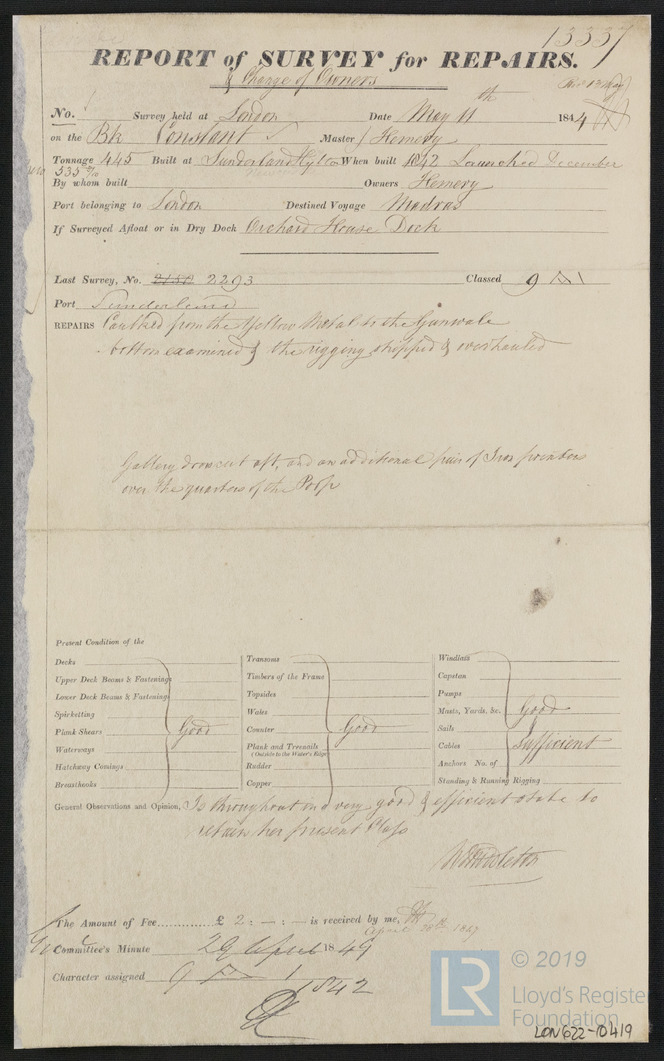 13337
REPORT of SURVEY for REPAIRS.
& Change of Owners
No. Survey held at London Date May 11th 1844
on the Bk Constant Master Hemery
Tonnage 445 Built at Sunderland Hylton When built 1842 Launched December
535
By whom built Owners Hemery
Port belonging to London Destined Voyage Madras
If Surveyed Afloat or in Dry Dock Orchard House Dock
Last Survey, No. 2293 Classed 9 A 1
Port Sunderland
REPAIRS Caulked from the Yellow Metal to the Gunwale
bottom examined & the rigging stripped & overhauled
Gallery drove out aft, and an additional pair of Iron pointers
over the quarters of the Poop
Present Condition of the
Decks
Upper Deck Beams & Fastenings
Lower Deck Beams & Fastenings
Spirketting
Plank Shears Good
Waterways
Hatchway Comings
Breasthooks
Transoms
Timbers of the Frame
Topsides
Wales
Counter Good
Plank and Treenails
(Outside to the Water's Edge)
Rudder
Copper
Windlass
Capstan
Pumps
Masts, Yards, &c. Good
Sails
Cables Sufficient
Anchors No. of
Standing & Running Rigging
General Observations and Opinion, Is throughout in a very good & efficient state to
retain her present Class
The Amount of Fee.............. £ 2 : — : — is received by me,
April 28th 1847
Committee's Minute 29 April 1849
Character assigned 9 A 1
1842
© 2019
LR
Lloyd's Register
Foundation
LON622-0419